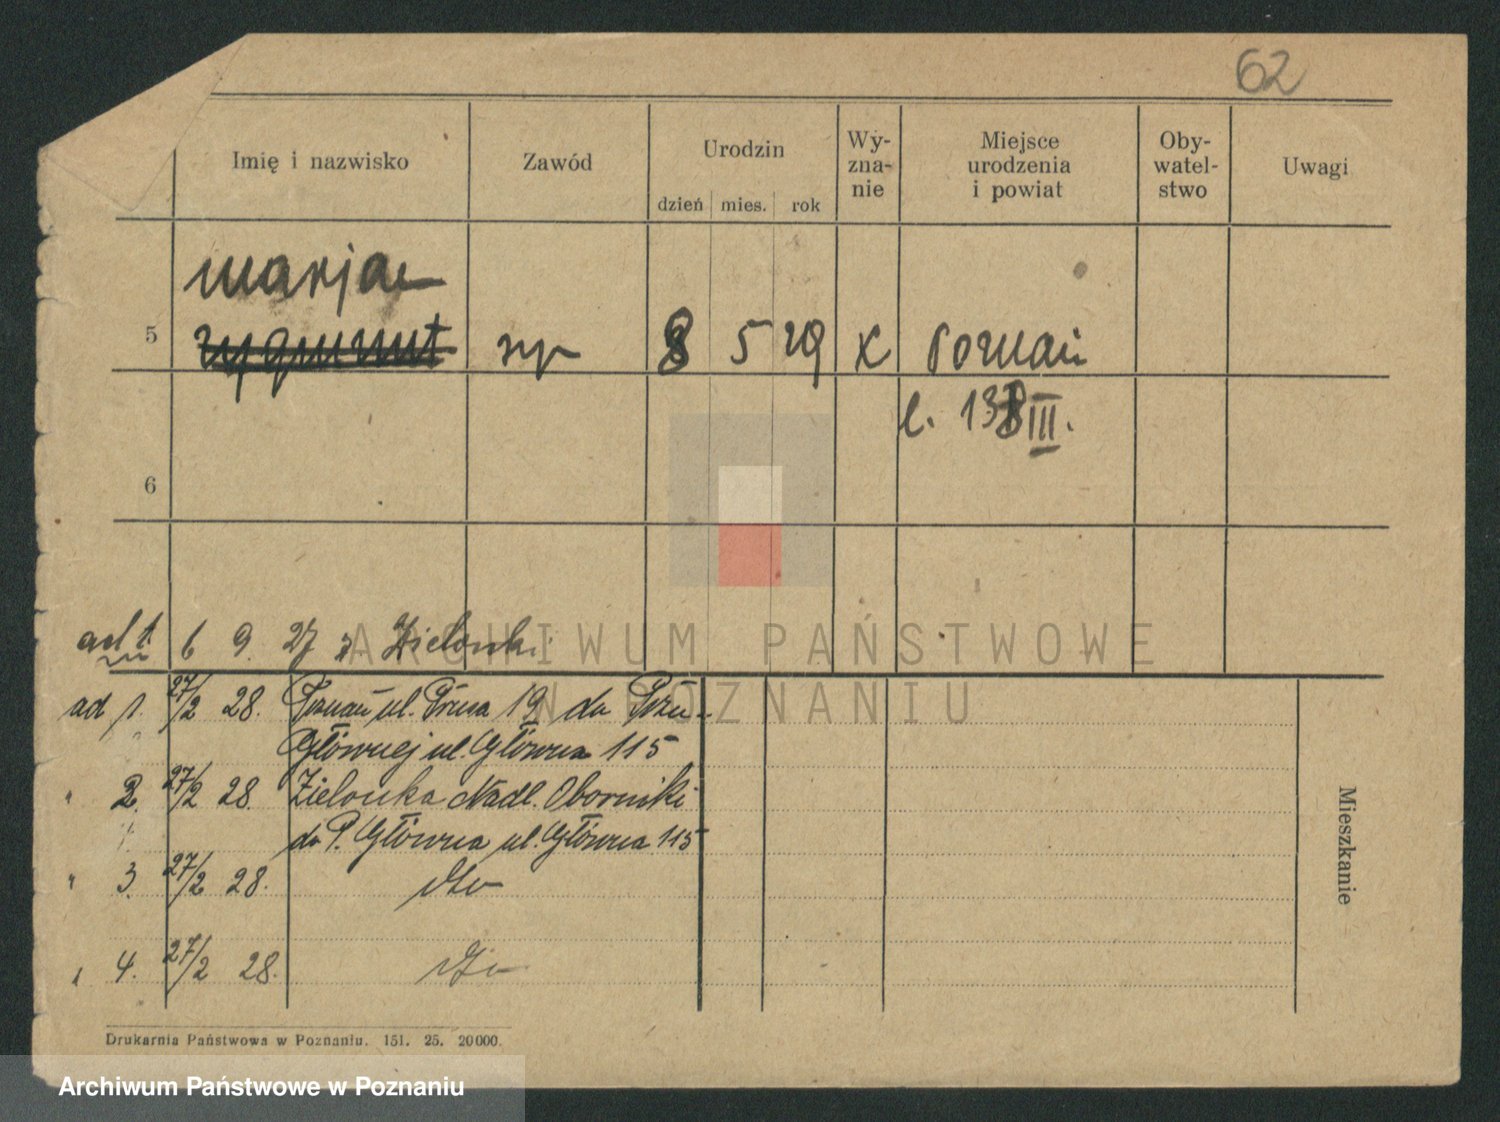 62
Imię i nazwisko Zawód Urodzin Wy-zna-nie Miejsce urodzenia i powiat Oby-watel-stwo Uwagi
dzień mies. rok
marjan
5 zygmunt syn 8 5 29 K Poznań
l. 138 III.
6
ad 1. 6 9. 27 z Zielonki
ad 1. 27/2 28. Poznań ul. Prusa 19 do Pozn.
Głównej ul. Główna 115
" 2. 27/2 28. Zielonka Nadl. Oborniki
do P. Główna ul. Główna 115
" 3. 27/2 28. dto
" 4. 27/2 28. dto
Mieszkanie
ARCHIWUM PAŃSTWOWE
W POZNANIU
Drukarnia Państwowa w Poznaniu. 151. 25. 20000.
Archiwum Państwowe w Poznaniu